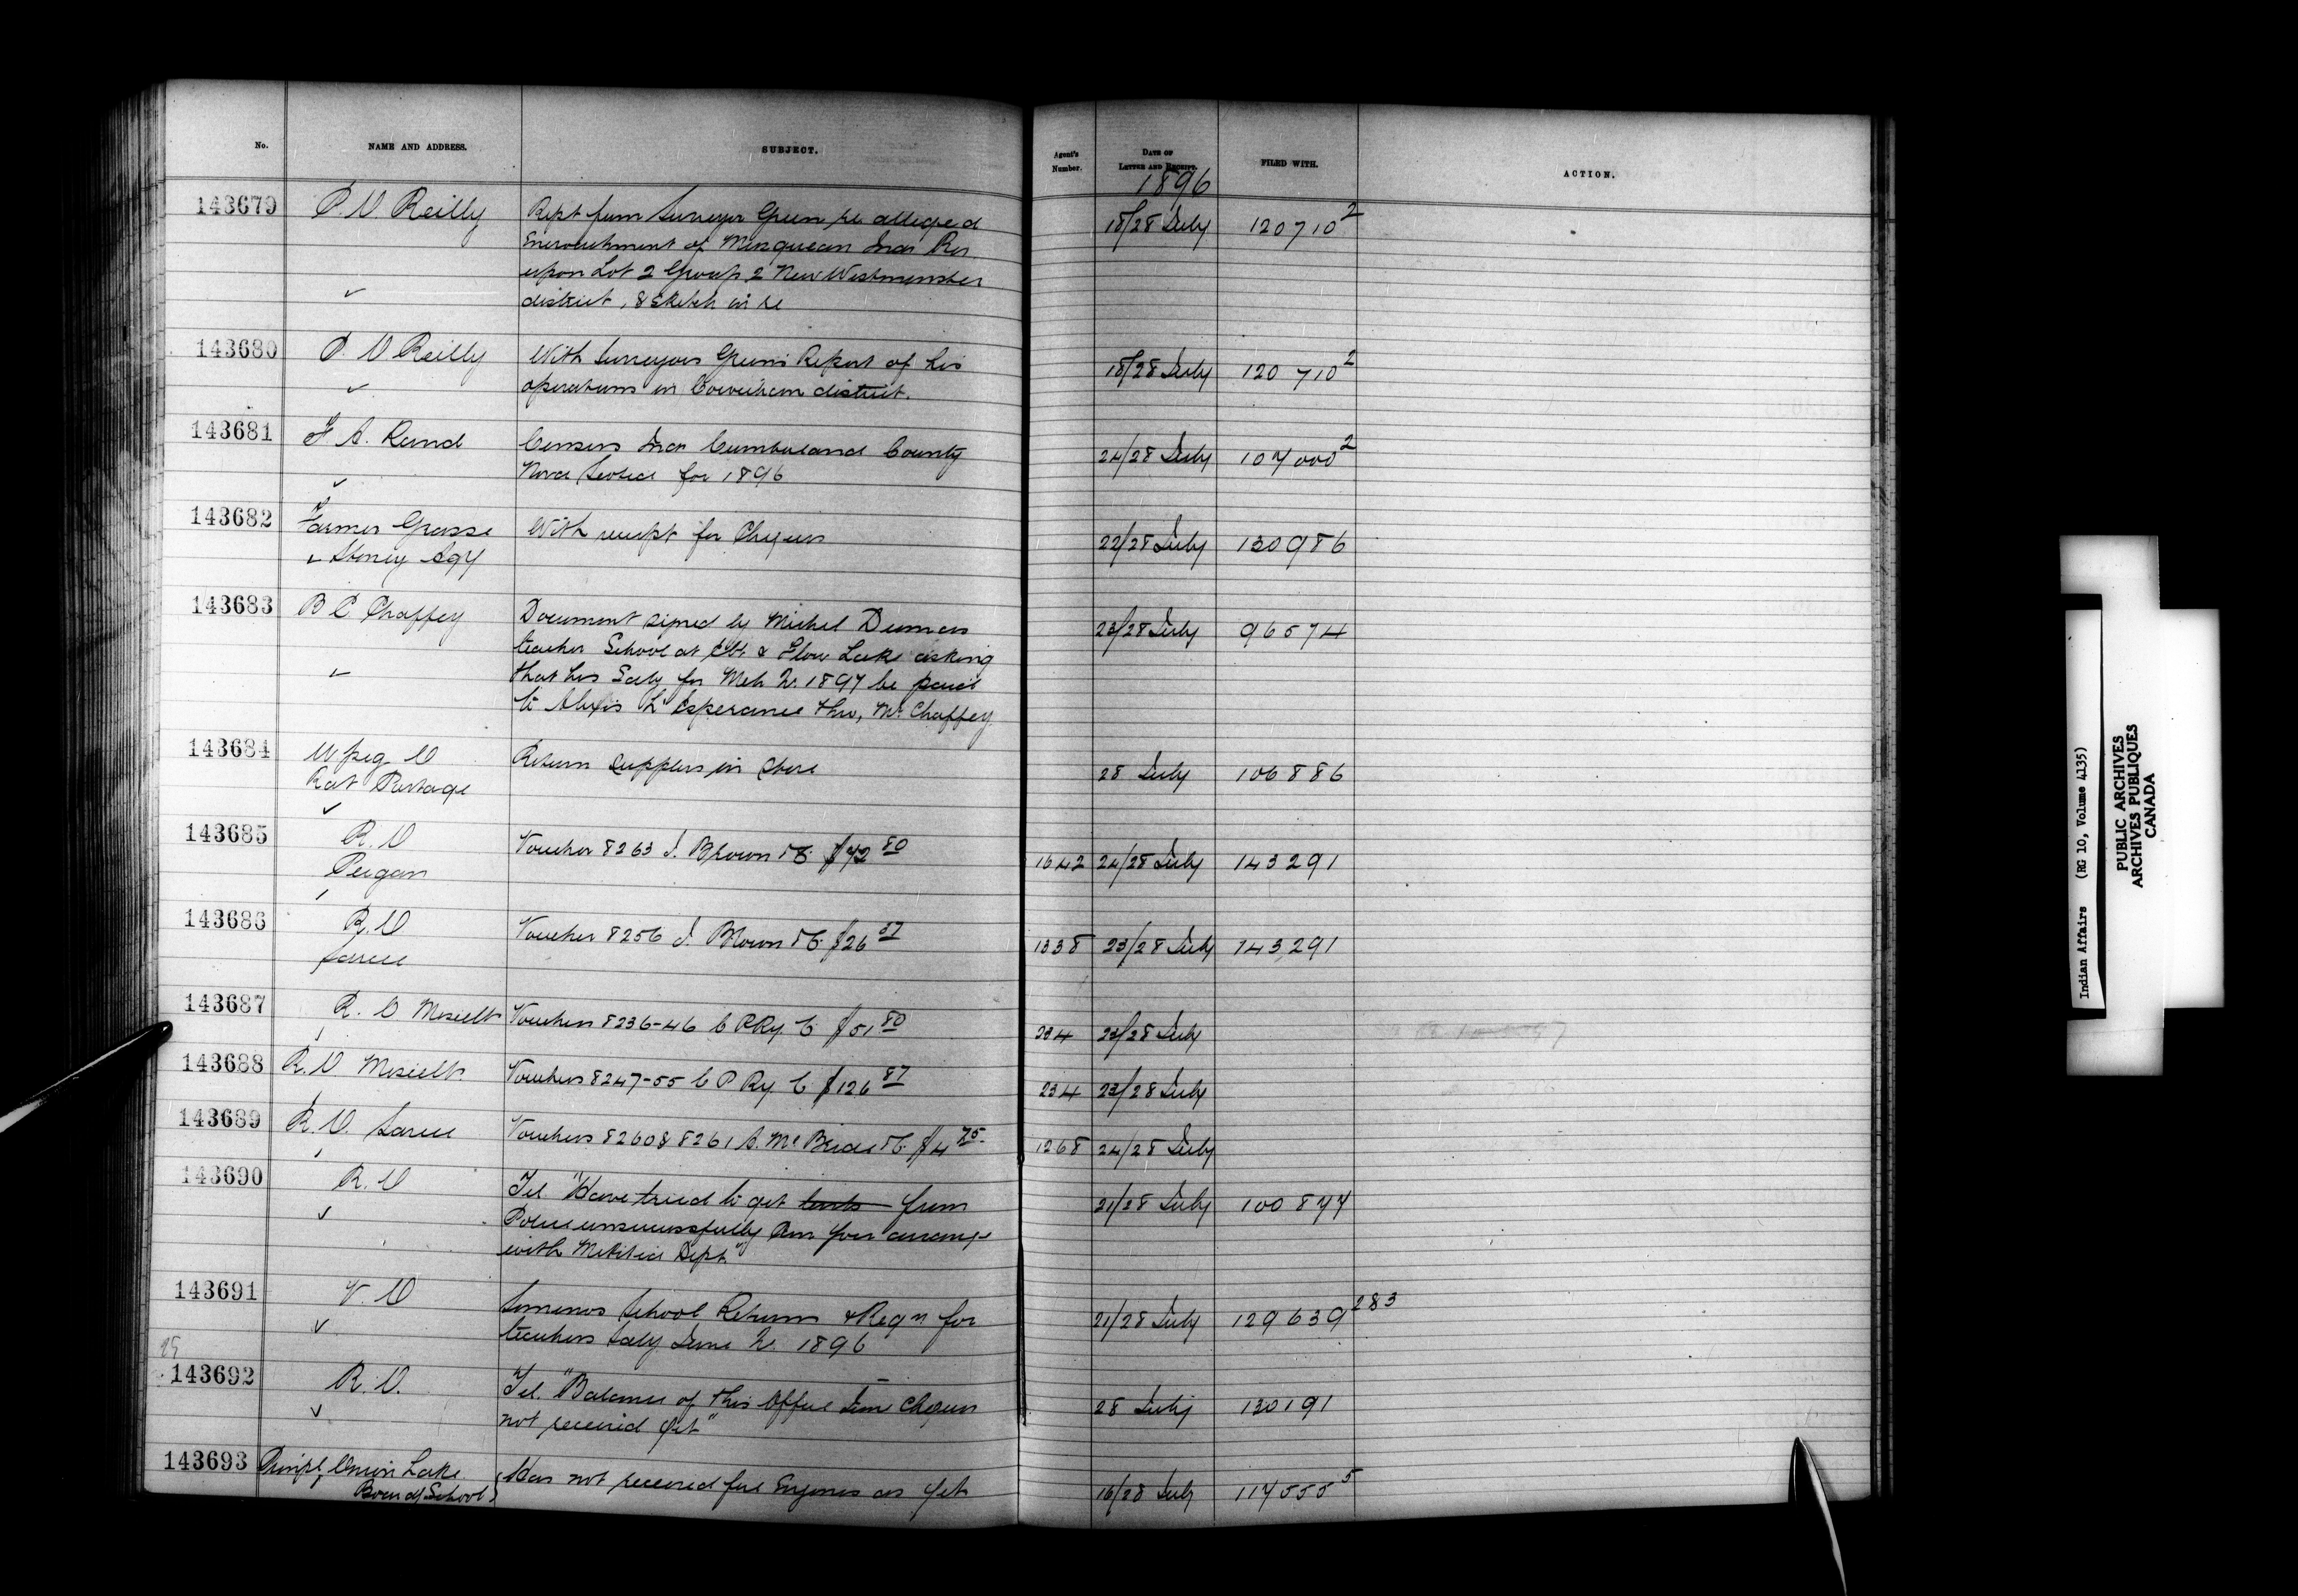 No. NAME AND ADDRESS. SUBJECT. Agent's Number. DATE OF LETTER AND RECEIPT. FILED WITH. ACTION.
1896
143679 P. O Reilly Rept from Surveyor Green re alleged 18/28 July 120710²
Encroachment of Musqueam Inds Res
upon Lot 2 Group 2 New Westminster
✓ district, & sketch in re
143680 P. O Reilly With Surveyors Green's Report of his 18/28 July 120710²
✓ operations in Cowichan district.
143681 F. A. Rand Census Inds Cumberland County 24/28 July 107000²
✓ Nova Scotia for 1896
143682 Farmer Grasse With receipt for Cheques 22/28 July 130986
✓ Stoney Agy
143683 B C Chaffey Document signed by Michel Dumas 23/28 July 96574
teacher School at & Flow Lake asking
✓ that his Saly for Mch Qr. 1897 be paid
to Alexis L'Esperance thro, Mr Chaffey
143684 Wpeg O Return supplies in store 28 July 106886
Rat Portage
✓
143685 R. O Voucher 8263 J. Brown $72 80 1642 24/28 July 143291
Peigan
143686 R. O Voucher 8256 J. Brown $26 57 1338 23/28 July 143291
Sarcee
143687 R. O Vouchers 8236-46 C P Ry. C $51 80 234 23/28 July
143688 R. O Vouchers 8247-55 C P Ry. C $126 87 234 23/28 July
143689 R. O. Sarcee Vouchers 8260 & 8261 A. Mc Bride $4 75 1268 24/28 July
143690 R. O Tel "Have tried to get tents from 21/28 July 100877
✓ Police unsuccessfully Can you arrange
with Militia Dept."
143691 V. O Somenos School Returns & Reqn for 21/28 July 129639 283
✓ teachers Saly June Qr. 1896
25
143692 R. O. Tel. "Balance of this Office June Cheques 28 July 130191
✓ not received yet"
143693 Principl, Onion Lake Has not received fire Engines as yet 16/28 July 117555⁵
Board School
Indian Affairs (RG 10, Volume 4135)
PUBLIC ARCHIVES
ARCHIVES PUBLIQUES
CANADA